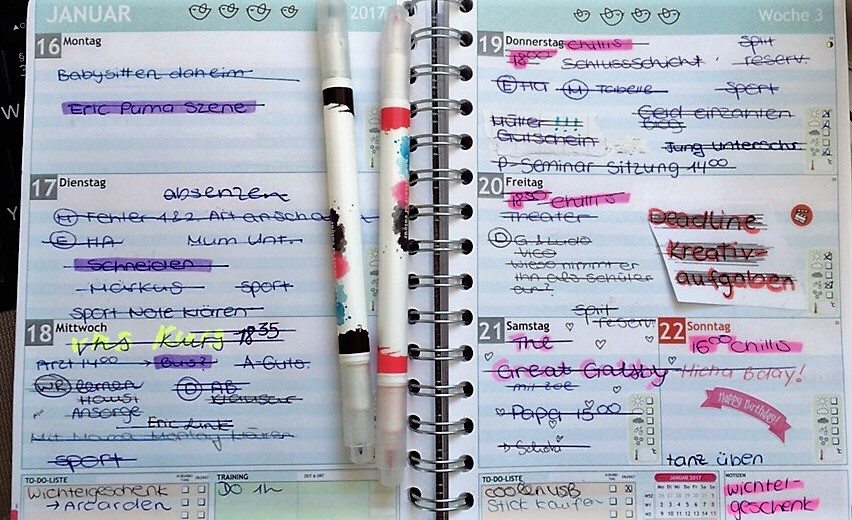 JANUAR
2017
16 Montag
Babysitten daheim
Eric Puma Szene
17 Dienstag
absenzen
(M) Fehler 1&2. Art anscha
(E) HA Mum Unt.
Schneiden
Markus sport
Sport Note klären
18 Mittwoch
vhs Kurs 18 35
Arzt 14 00 → Bus? A-Guts.
(WR) lernen (D) AB
Ansorge
Eric Link
Mit Mama Montag klären
sport
TO-DO-LISTE
wichtelgeschenk
→ Arcarden
TRAINING
DO 1h
Woche 3
19 Donnerstag chillis
18 00 Schlussschicht split reserv.
(E) HU (M) Tabelle sport
Müller !!! Geld einzahlen
Gutschein Jung unterschr.
P-Seminar Sitzung 14 00
20 Freitag
18 30 chillis
Theater
(D)
wieso nimmt er
ihn als schüler
an?
Deadline
Kreativ-
aufgaben
split
reserv.
21 Samstag
The
Great Gatsby
mit Zoe
Papa 15 00
22 Sonntag
16 00 chillis
Micha Bday!
Happy Birthday!
tanz üben
TO-DO-LISTE
coolen USB
Stick kaufen
JANUAR 2017
Mo Di Mi Do Fr Sa So
NOTIZEN
wichtel-
geschenk